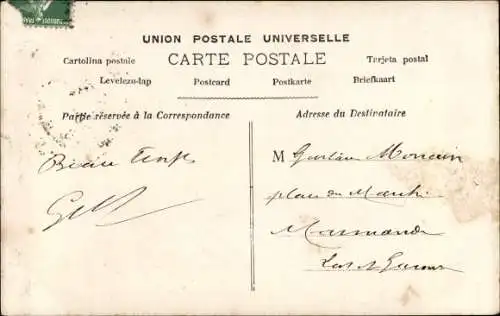 UNION POSTALE UNIVERSELLE
CARTE POSTALE
Cartolina postale
Terjeta postal
Levelezo-lap
Postcard
Postkarte
Briefkaart
Partie réservée à la Correspondance
Adresse du Destinataire
Beau Temps
M Gaston
place du Marché
Marmande
Lot & Garonne